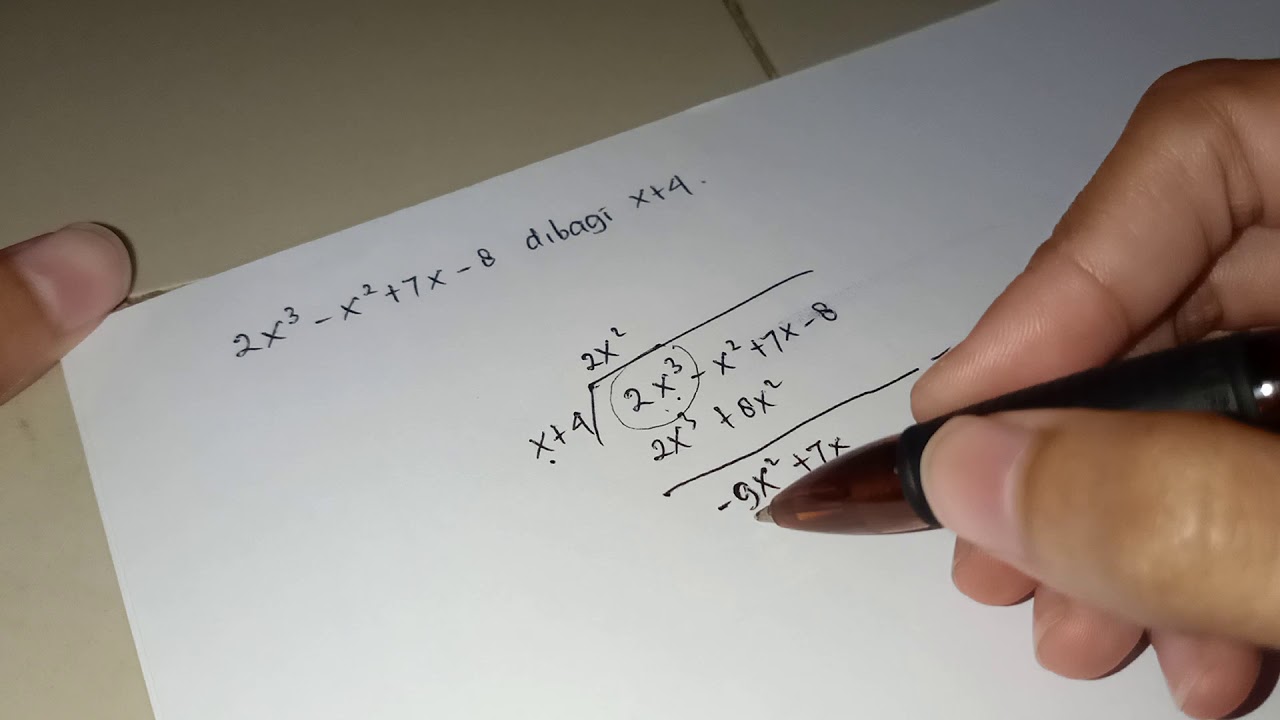 2x³ - x² + 7x - 8 dibagi x+4.
2x²
x+4 2x³ - x² + 7x - 8
2x³ + 8x² -
-9x² + 7x